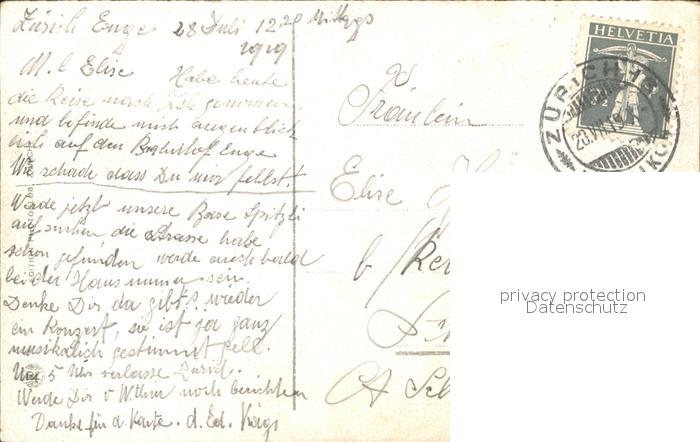 Zürich Enge 28 Juli 12.20 Mittags
1919
M. l. Elise Habe heute
die Reise nach Zch genommen
und befinde mich augenblick
auf dem Bahnhof Enge
Wie schade dass Du mir fehlst!
Werde jetzt unsere Base Spitzli
aufsuchen die Strasse habe
schon gefunden werde auch bald
bei der Hausnummer sein.
Denke Dir da gibt's wieder
ein Konzert, sie ist ja ganz
musikalisch gestimmt gell.
Um 5 Uhr verlasse Zürich.
Werde Dir v. Wthur noch berichten
Danke für d. Karte. d. Ed.
Fräulein
Elise
b/
HELVETIA
ZÜRICH
privacy protection
Datenschutz